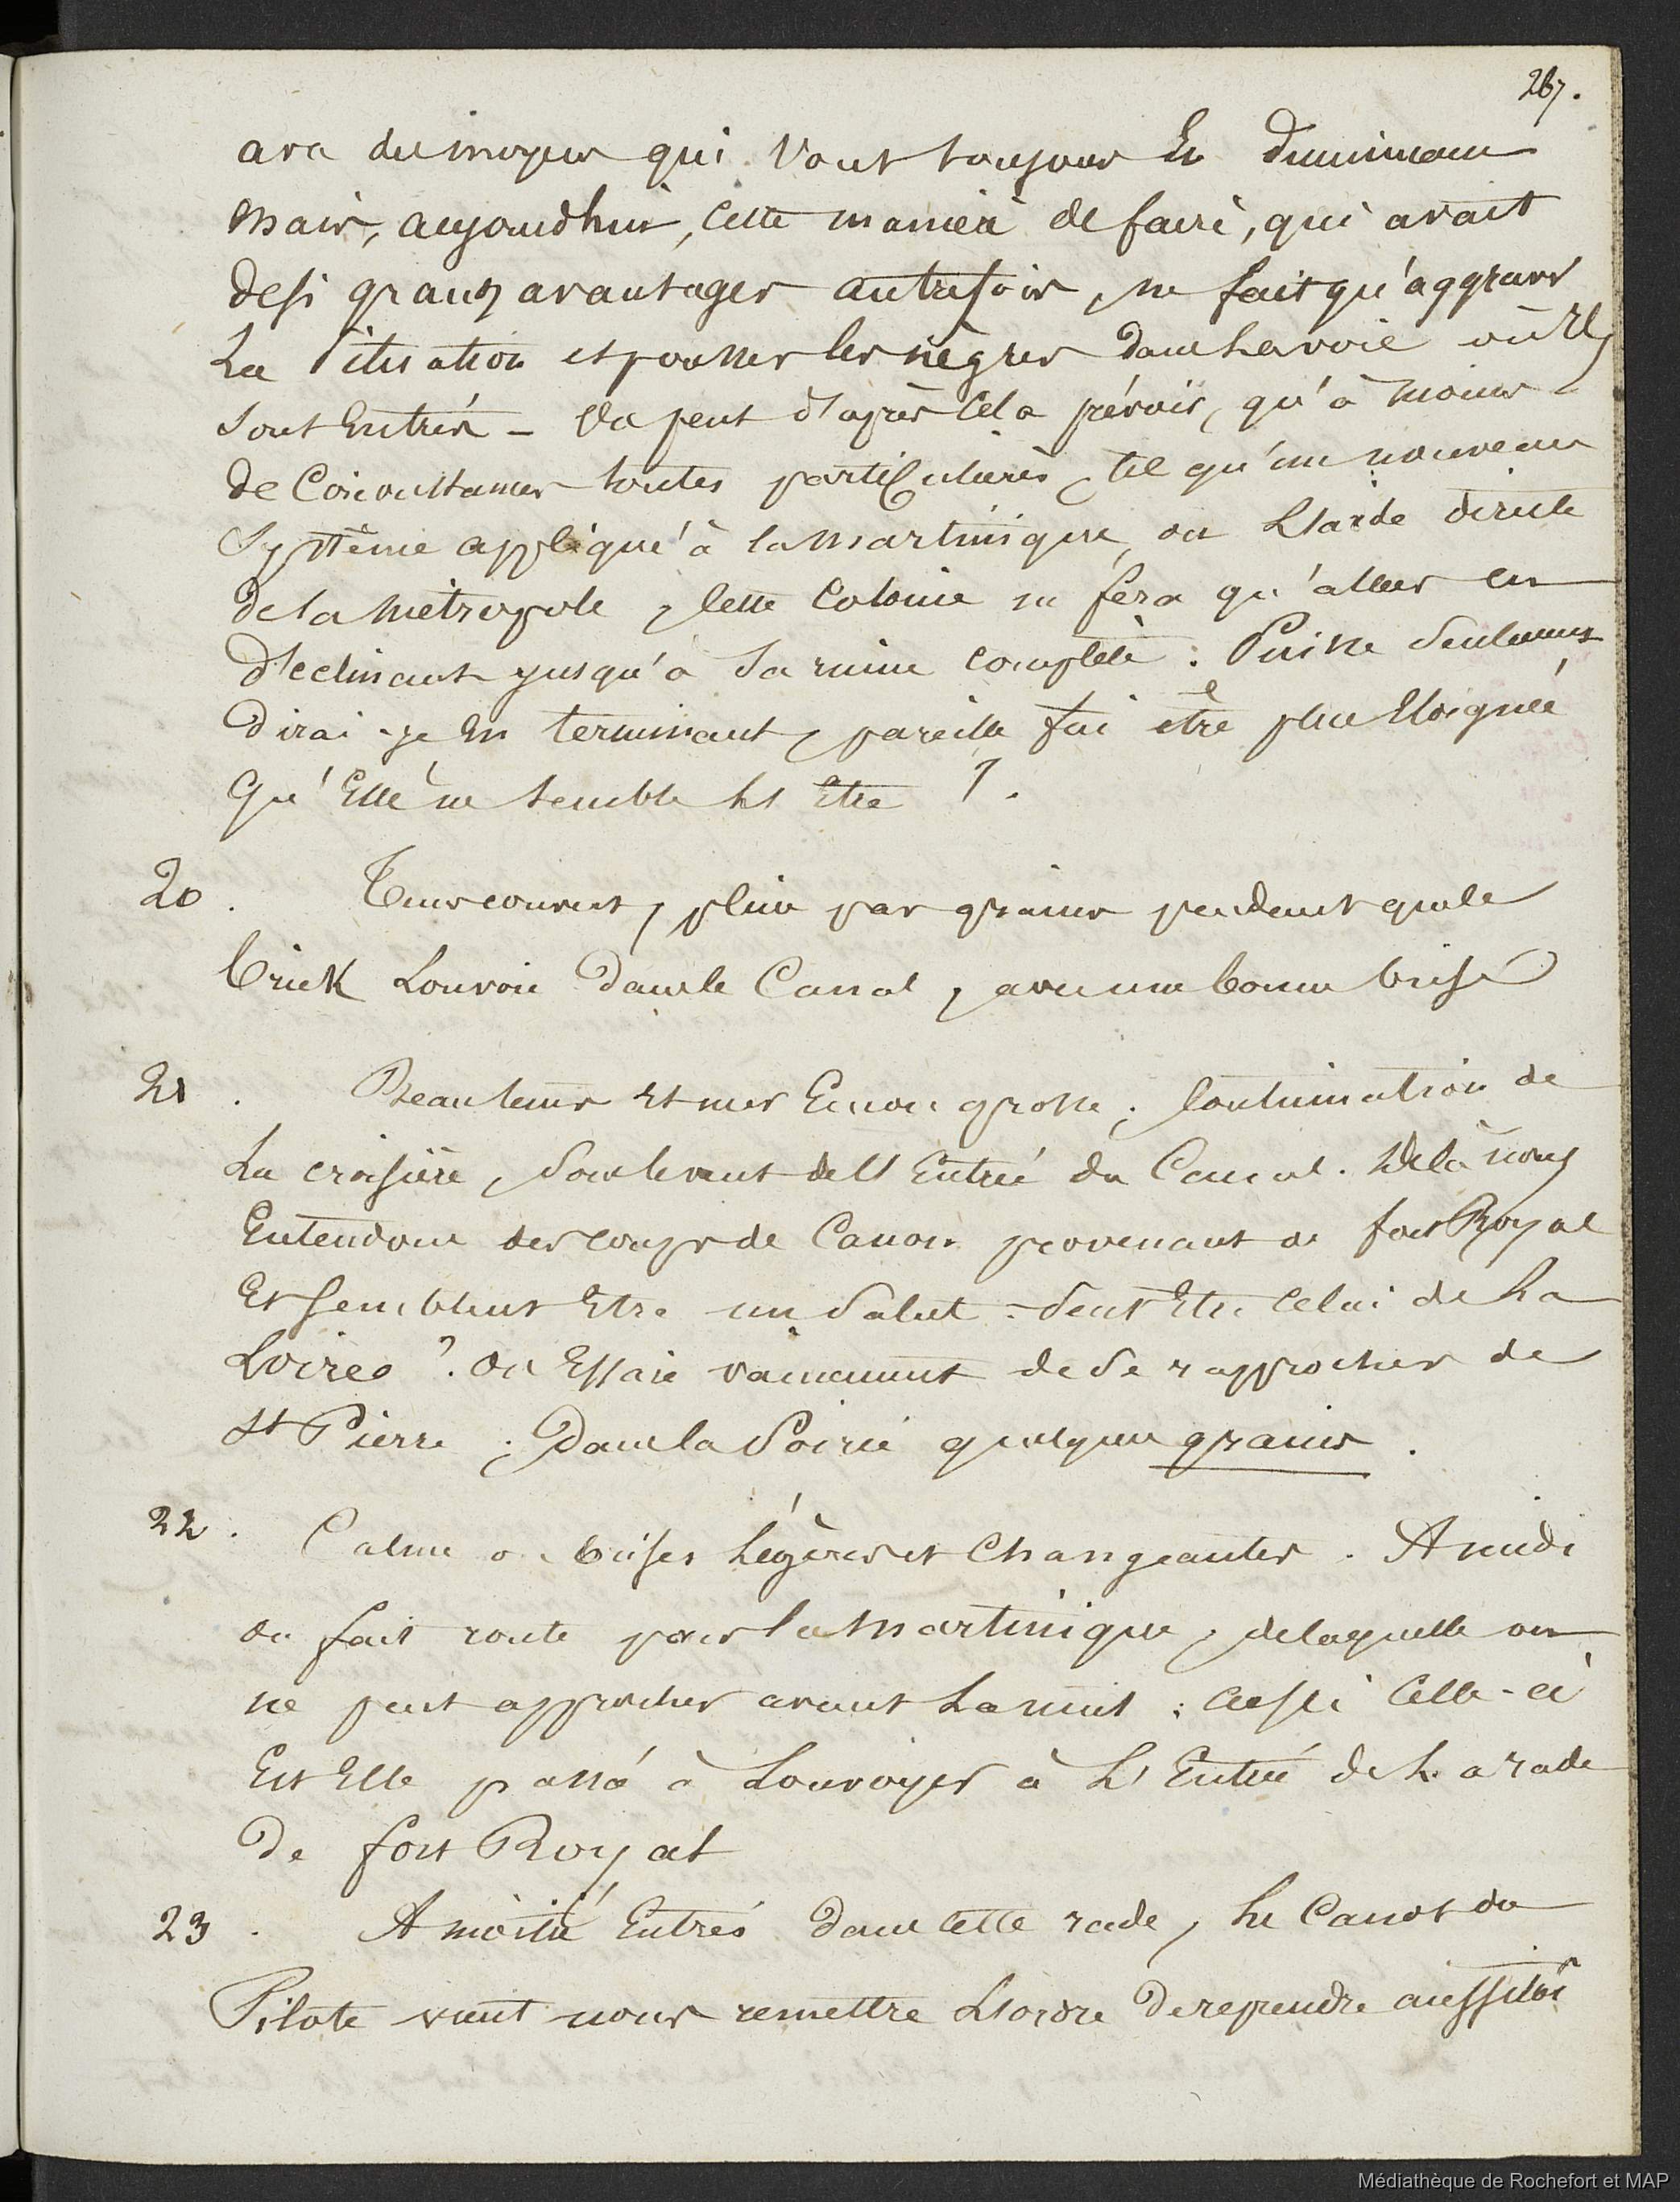 267.
avec des moyens qui vont toujours En diminuant
Mais, aujourdhui, cette maniere de faire, qui avait
de si grands avantages autrefois, ne fait qu'aggraver
La situation et pousser les nègres dans La voie où Ils
sont Entrés - On peut d'après Cela prévoir, qu'à moins
de Circonstances toutes particulieres, tel qu'un nouveau
Système appliqué à la Martinique, ou L'aide directe
de la Métropole, Cette Colonie ne fera qu'aller en
déclinant jusqu'à Sa ruine complète. Puisse Seulement
dirai-je En terminant, pareille fin être plus Eloignée
qu'Elle ne semble L'Etre !.
20. Tems couvert, pluie par grains pendant que le
brick Louvoie Dans le Canal, avec une bonne brise
21. Beau tems et mer Encore grosse; Continuation de
La croisière, Sous le vent de l'Entrée du Canal. De là nous
Entendons des coups de Canon provenant de fort Royal
Et semblant Etre un Salut - Peut Etre Celui de La
Loire ?. On Essaie vainement de Se rapprocher de
St Pierre; Dans la Soirée quelques grains.
22. Calme ou brises Légères et Changeantes. A midi
on fait route pour la Martinique, de laquelle on
ne peut approcher avant La nuit : aussi Celle-ci
Est Elle passée à Louvoyer à L'Entrée de La rade
De fort Royal
23. A moitié Entrés dans cette rade, Le Canot du
Pilote vient nous remettre L'ordre De reprendre aussitôt
Médiathèque de Rochefort et MAP